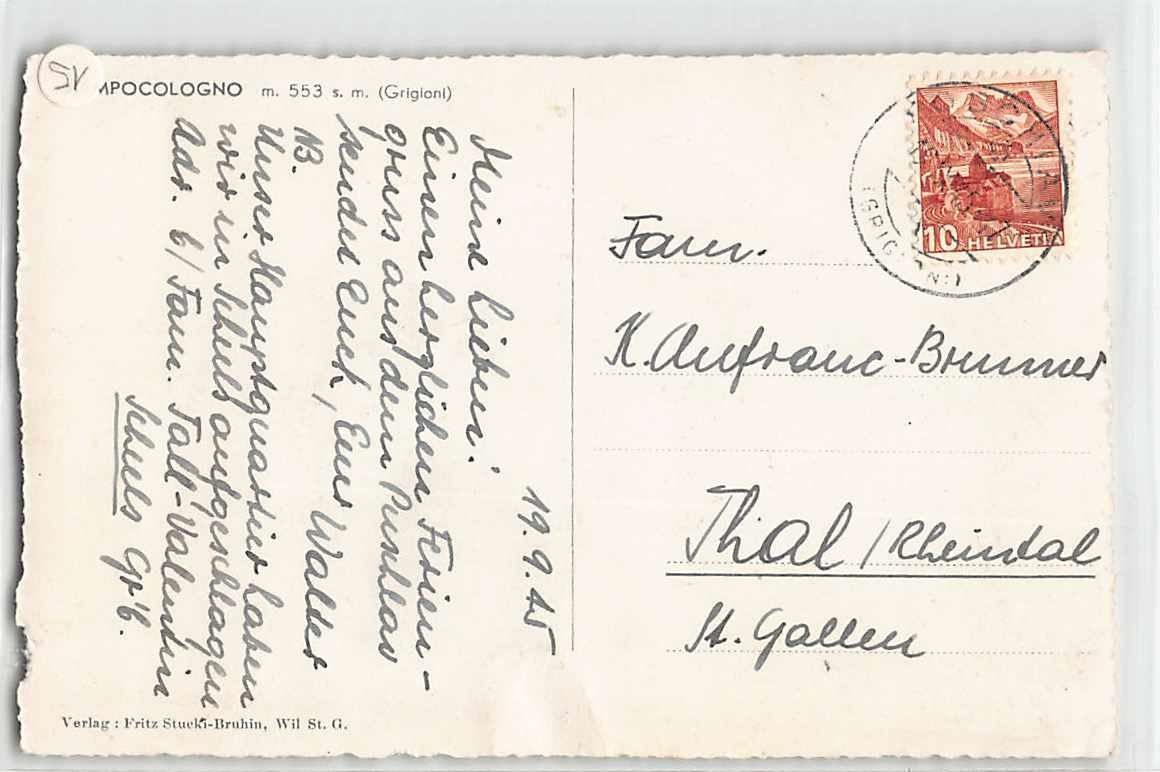 SV
MPOCOLOGNO m. 553 s. m. (Grigioni)
19.9.45
Meine Lieben!
Einen herzlichen Ferien-
gruss aus dem Puschlav
sendet Euch, Eure Walder
NB.
Unser Hauptquartier haben
wir in Schuls aufgeschlagen
Adr. b/ Fam. Fall-Valentin
Schuls Gr'b.
Verlag : Fritz Stucki-Bruhin, Wil St. G.
10 HELVETIA
(GRIGIONI)
Fam.
K. Anfranc-Brunner
Thal / Rheintal
St. Gallen